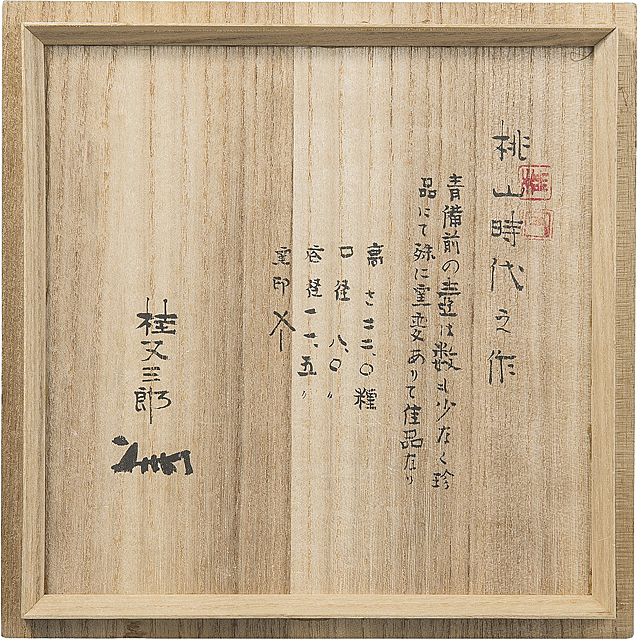 桃山時代之作
青備前の壷は数も少なく珍
品にて殊に窯変ありて佳品なり
高さ二二、〇糎
口径八、〇〃
谷径一一、五〃
窯印
桂又三郎